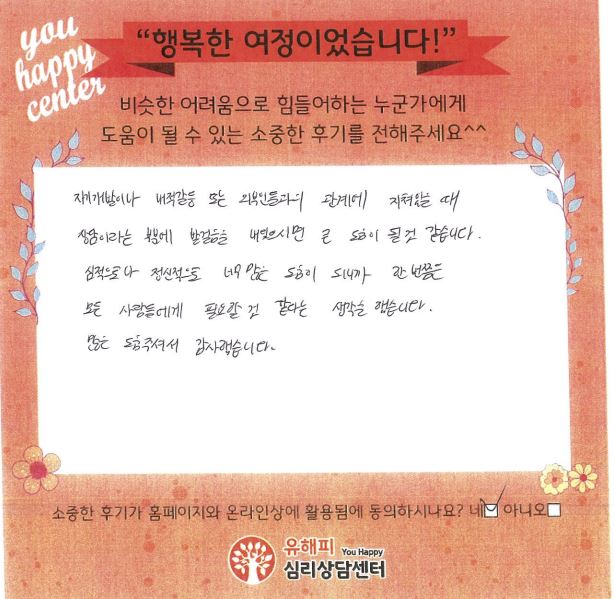 you
happy
center
“행복한 여정이었습니다!”
비슷한 어려움으로 힘들어하는 누군가에게
도움이 될 수 있는 소중한 후기를 전해주세요^^
자기개발이나 내적갈등 또는 외부인들과의 관계에 지쳐있을 때
상담이라는 부분에 발걸음을 내딛으시면 큰 도움이 될것 같습니다.
심적으로나 정신적으로 너무 많은 도움이 되니까 한 번쯤은
모든 사람들에게 필요할 것 같다는 생각을 했습니다.
많은 도움주셔서 감사했습니다.
소중한 후기가 홈페이지와 온라인상에 활용됨에 동의하시나요? 네☑ 아니오☐
유해피 You Happy
심리상담센터